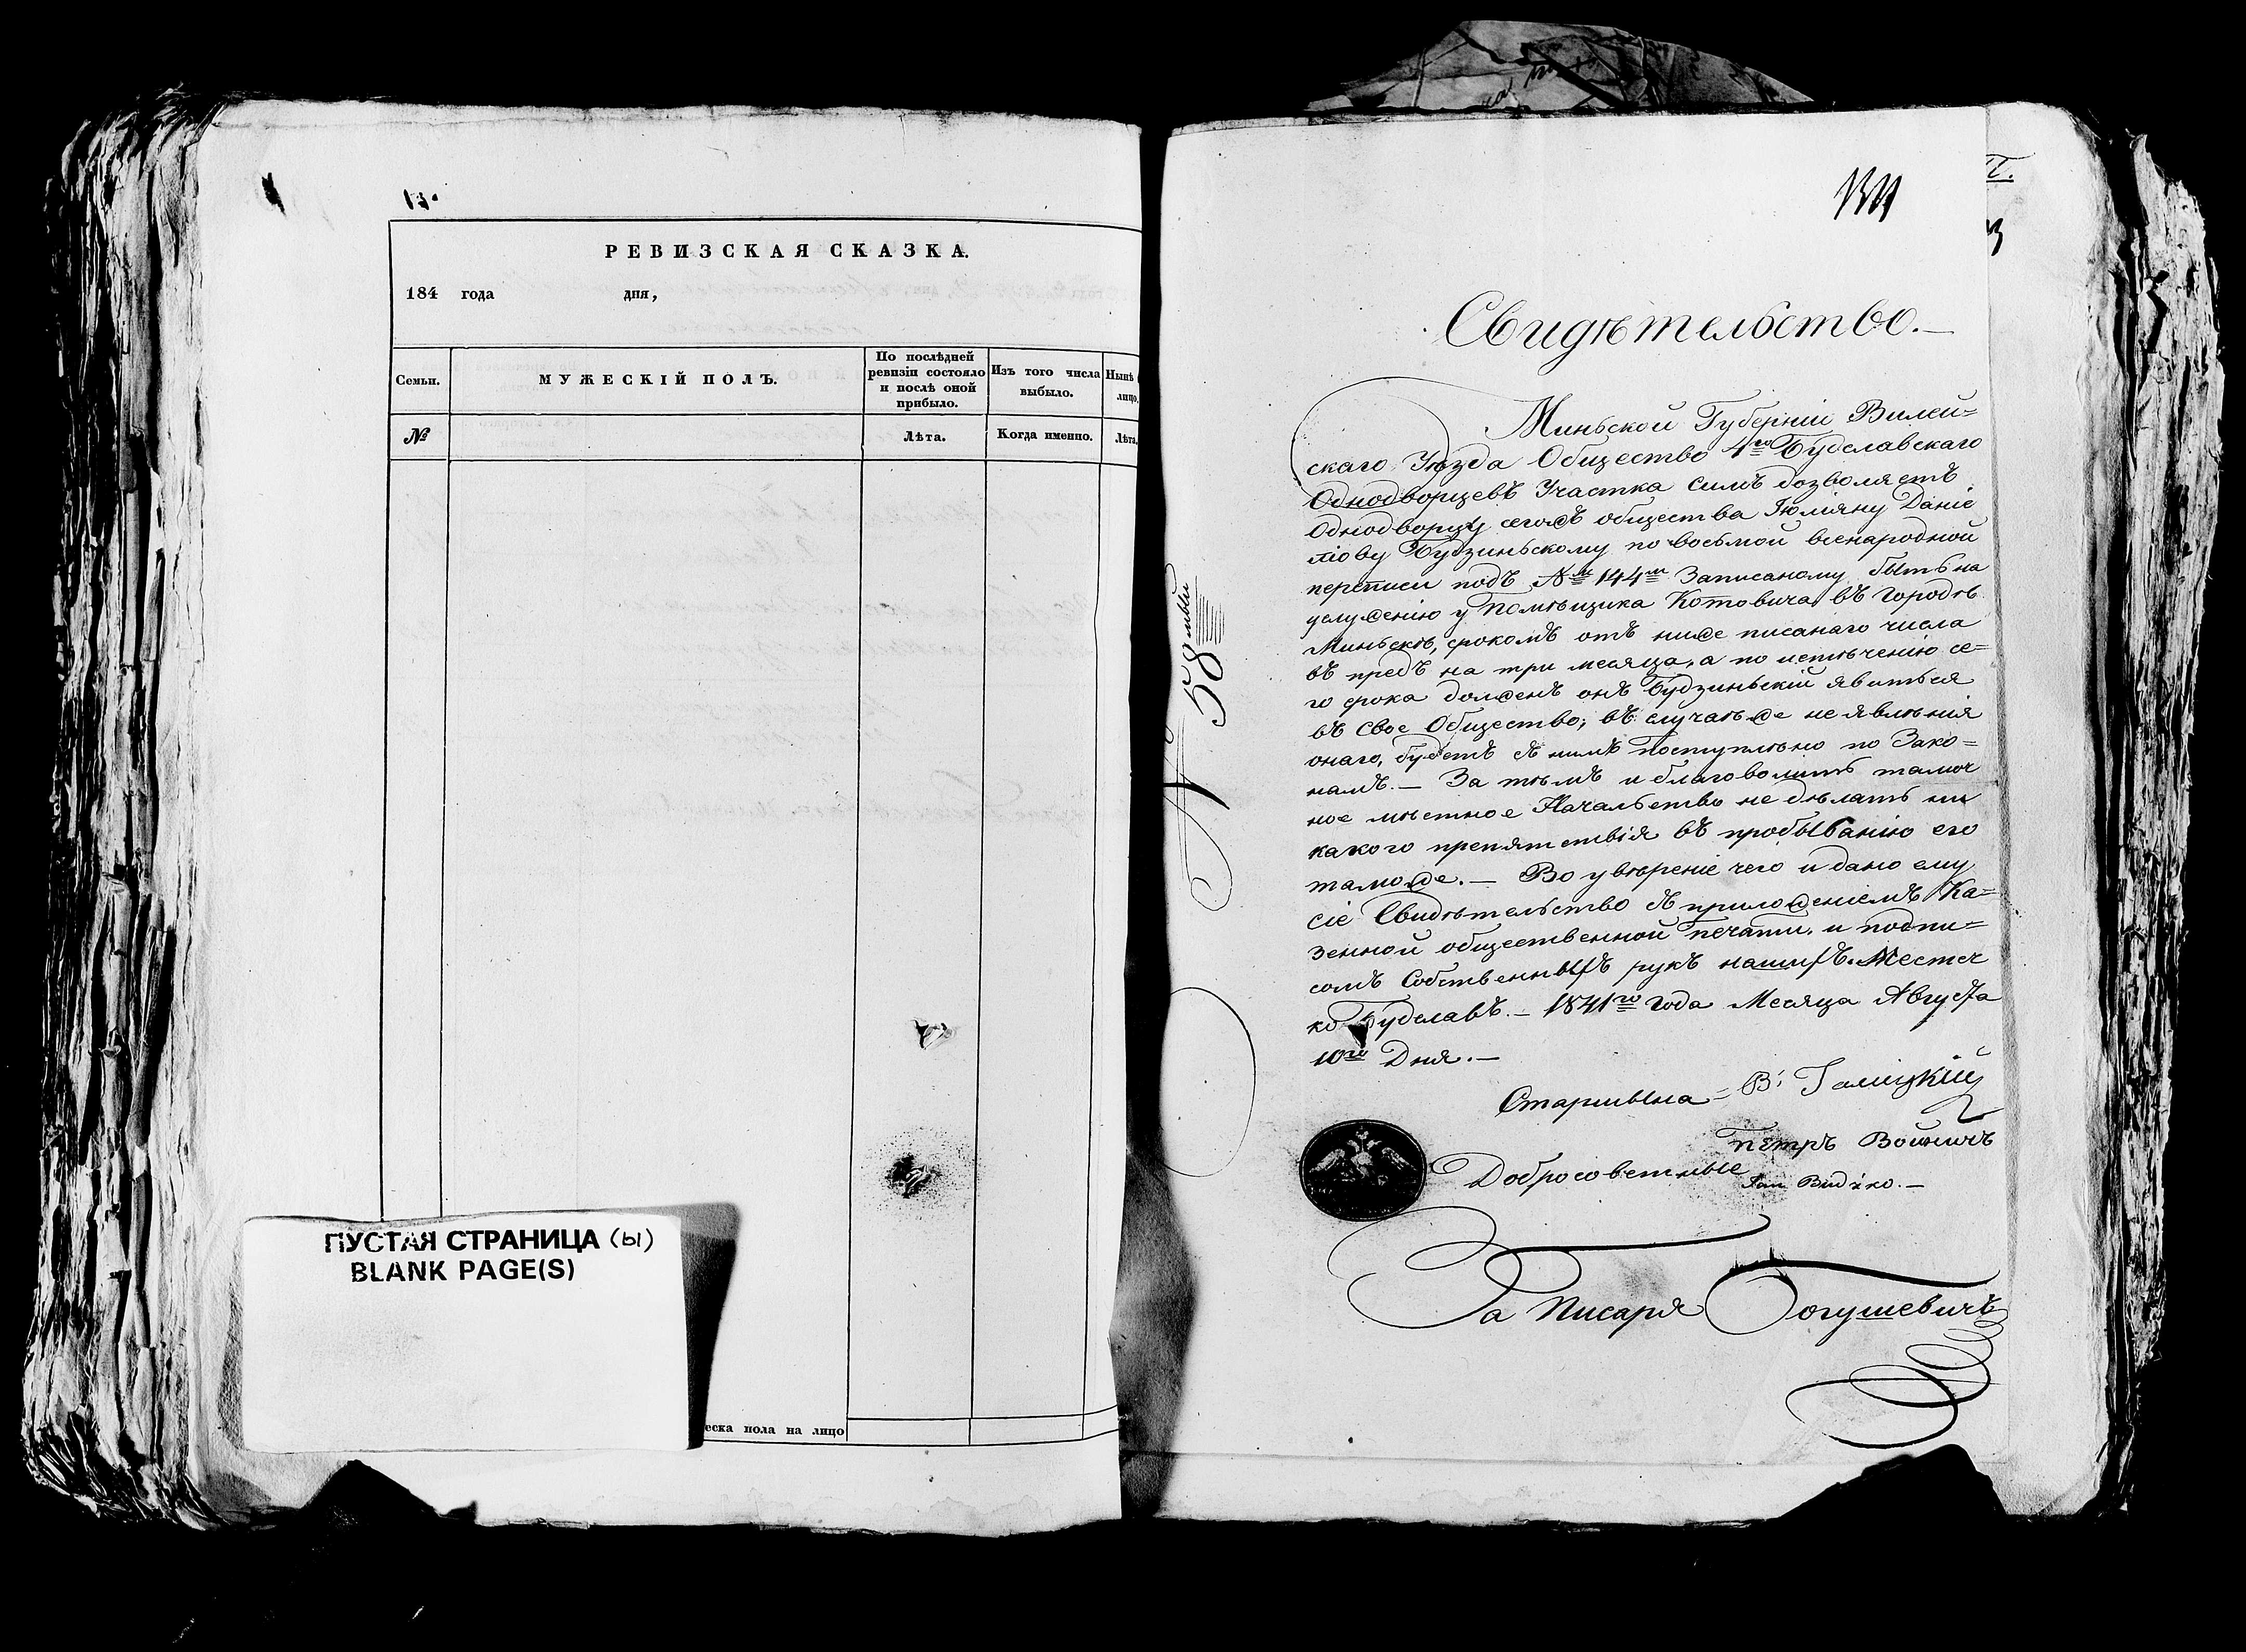 РЕВИЗСКАЯ СКАЗКА.
184 года дня,
Семьи.
МУЖЕСКІЙ ПОЛЪ.
По послѣдней
ревизіи состояло
и послѣ оной
прибыло.
Изъ того числа
выбыло.
Нынѣ
лицо,
№
Лѣта.
Когда именно.
Лѣта,
ПУСТАЯ СТРАНИЦА (ы)
BLANK PAGE(S)
еска пола на лицо
№ 58мый
Свидѣтельство.—
Миньской Губерніи Вилей=
скаго Уѣзда Общество 4го Будславскаго
Однодворцевъ Участка симъ дозволяетъ
Однодворцу сегожъ общества Юліяну Даніе
ліову Будзиньскому по восьмой всенародной
переписи подъ №м 144м Записаному быть на
услуженію у Помѣщика Котовича въ городѣ
Миньскѣ, срокомъ отъ ниже писанаго числа
въ предъ на три месяца, а по истѣченію се=
го срока долженъ онъ Будзиньскій явиться
въ Свое Общество; въ случаѣ же не явлѣнія
онаго, будетъ съ нимъ Поступлѣно по Зако=
намъ.— За тѣмъ и благоволитъ тамоч
ное мѣстное Начальство не дѣлать ни
какого препятствія въ пробыванію его
таможе.— Во увѣреніе чего и дано ему
сіе Свидѣтельство съ приложеніемъ Ка=
зенной общественной Печати, и подпи=
сомъ Собственныхъ рукъ нашихъ. Местеч
ко Будславъ.— 1841го года Месяца Августа
10го Дня.—
Старшына = В: Галицкій
Добросовестные Петръ Войничъ
Jan Budźko.—
За Писаря Богушевичъ